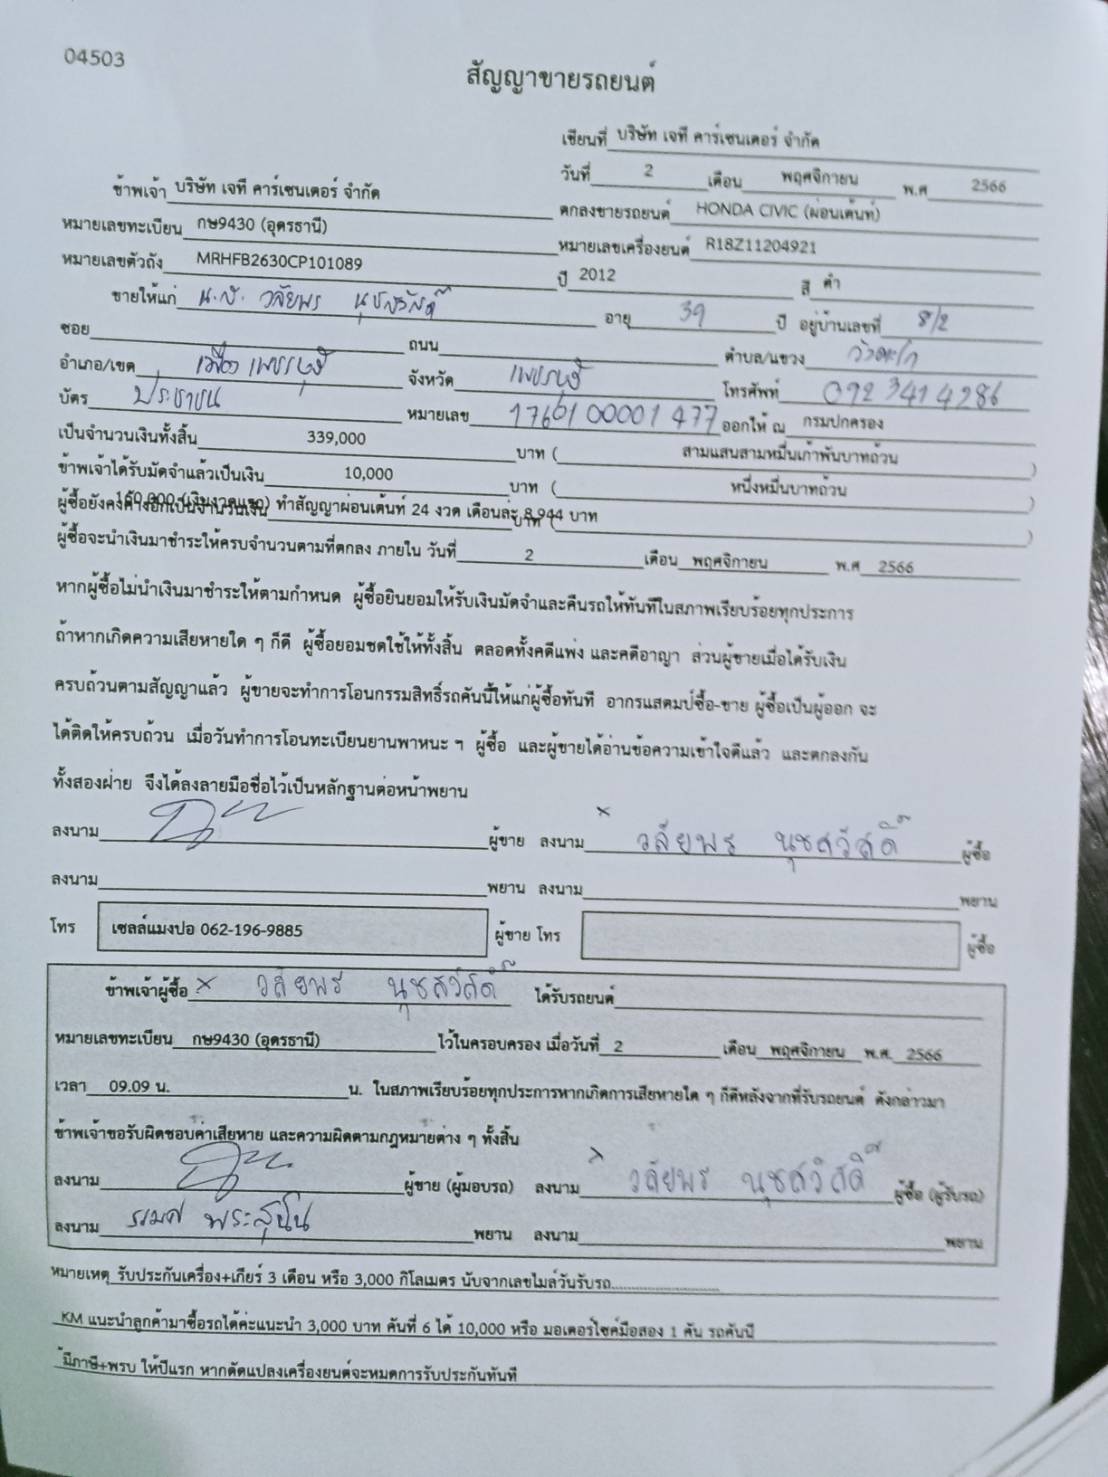 04503
สัญญาขายรถยนต์
เขียนที่ บริษัท เจที คาร์เซนเตอร์ จำกัด
วันที่ 2 เดือน พฤศจิกายน พ.ศ 2566
ข้าพเจ้า บริษัท เจที คาร์เซนเตอร์ จำกัด ตกลงขายรถยนต์ HONDA CIVIC (ผ่อนเต้นท์)
หมายเลขทะเบียน กษ9430 (อุดรธานี) หมายเลขเครื่องยนต์ R18Z11204921
หมายเลขตัวถัง MRHFB2630CP101089 ปี 2012 สี ดำ
ขายให้แก่ น.ส. วลัยพร นุชสวัสดิ์ อายุ 39 ปี อยู่บ้านเลขที่ 8/2
ซอย ถนน ตำบล/แขวง วังตะโก
อำเภอ/เขต เมืองเพชรบุรี จังหวัด เพชรบุรี โทรศัพท์ 092 3414286
บัตร ประชาชน หมายเลข ออกให้ ณ กรมปกครอง
เป็นจำนวนเงินทั้งสิ้น 339,000 บาท ( สามแสนสามหมื่นเก้าพันบาทถ้วน )
ข้าพเจ้าได้รับมัดจำแล้วเป็นเงิน 10,000 บาท ( หนึ่งหมื่นบาทถ้วน )
ผู้ซื้อยังคงค้างอีกเป็นจำนวนเงิน (เงินงวดแรก) ทำสัญญาผ่อนเต้นท์ 24 งวด เดือนละ 8,944 บาท บาท ( )
ผู้ซื้อจะนำเงินมาชำระให้ครบจำนวนตามที่ตกลง ภายใน วันที่ 2 เดือน พฤศจิกายน พ.ศ 2566
หากผู้ซื้อไม่นำเงินมาชำระให้ตามกำหนด ผู้ซื้อยินยอมให้รับเงินมัดจำและคืนรถให้ทันทีในสภาพเรียบร้อยทุกประการ
ถ้าหากเกิดความเสียหายใด ๆ ก็ดี ผู้ซื้อยอมชดใช้ให้ทั้งสิ้น ตลอดทั้งคดีแพ่ง และคดีอาญา ส่วนผู้ขายเมื่อได้รับเงิน
ครบถ้วนตามสัญญาแล้ว ผู้ขายจะทำการโอนกรรมสิทธิ์รถคันนี้ให้แก่ผู้ซื้อทันที อากรแสตมป์ซื้อ-ขาย ผู้ซื้อเป็นผู้ออก จะ
ได้ติดให้ครบถ้วน เมื่อวันทำการโอนทะเบียนยานพาหนะ ฯ ผู้ซื้อ และผู้ขายได้อ่านข้อความเข้าใจดีแล้ว และตกลงกัน
ทั้งสองฝ่าย จึงได้ลงลายมือชื่อไว้เป็นหลักฐานต่อหน้าพยาน
ลงนาม ผู้ขาย ลงนาม × วลัยพร นุชสวัสดิ์ ผู้ซื้อ
ลงนาม พยาน ลงนาม พยาน
โทร เซลล์แมงปอ 062-196-9885 ผู้ขาย โทร ผู้ซื้อ
ข้าพเจ้าผู้ซื้อ × วลัยพร นุชสวัสดิ์ ได้รับรถยนต์
หมายเลขทะเบียน กษ9430 (อุดรธานี) ไว้ในครอบครอง เมื่อวันที่ 2 เดือน พฤศจิกายน พ.ศ. 2566
เวลา 09.09 น. น. ในสภาพเรียบร้อยทุกประการหากเกิดการเสียหายใด ๆ ก็ดีหลังจากที่รับรถยนต์ ดังกล่าวมา
ข้าพเจ้าขอรับผิดชอบค่าเสียหาย และความผิดตามกฎหมายต่าง ๆ ทั้งสิ้น
ลงนาม ผู้ขาย (ผู้มอบรถ) ลงนาม × วลัยพร นุชสวัสดิ์ ผู้ซื้อ (ผู้รับรถ)
ลงนาม พยาน ลงนาม พยาน
หมายเหตุ รับประกันเครื่อง+เกียร์ 3 เดือน หรือ 3,000 กิโลเมตร นับจากเลขไมล์วันรับรถ........................
KM แนะนำลูกค้ามาซื้อรถได้ค่ะแนะนำ 3,000 บาท คันที่ 6 ได้ 10,000 หรือ มอเตอร์ไซค์มือสอง 1 คัน รถคันนี้
มีภาษี+พรบ ให้ปีแรก หากดัดแปลงเครื่องยนต์จะหมดการรับประกันทันที